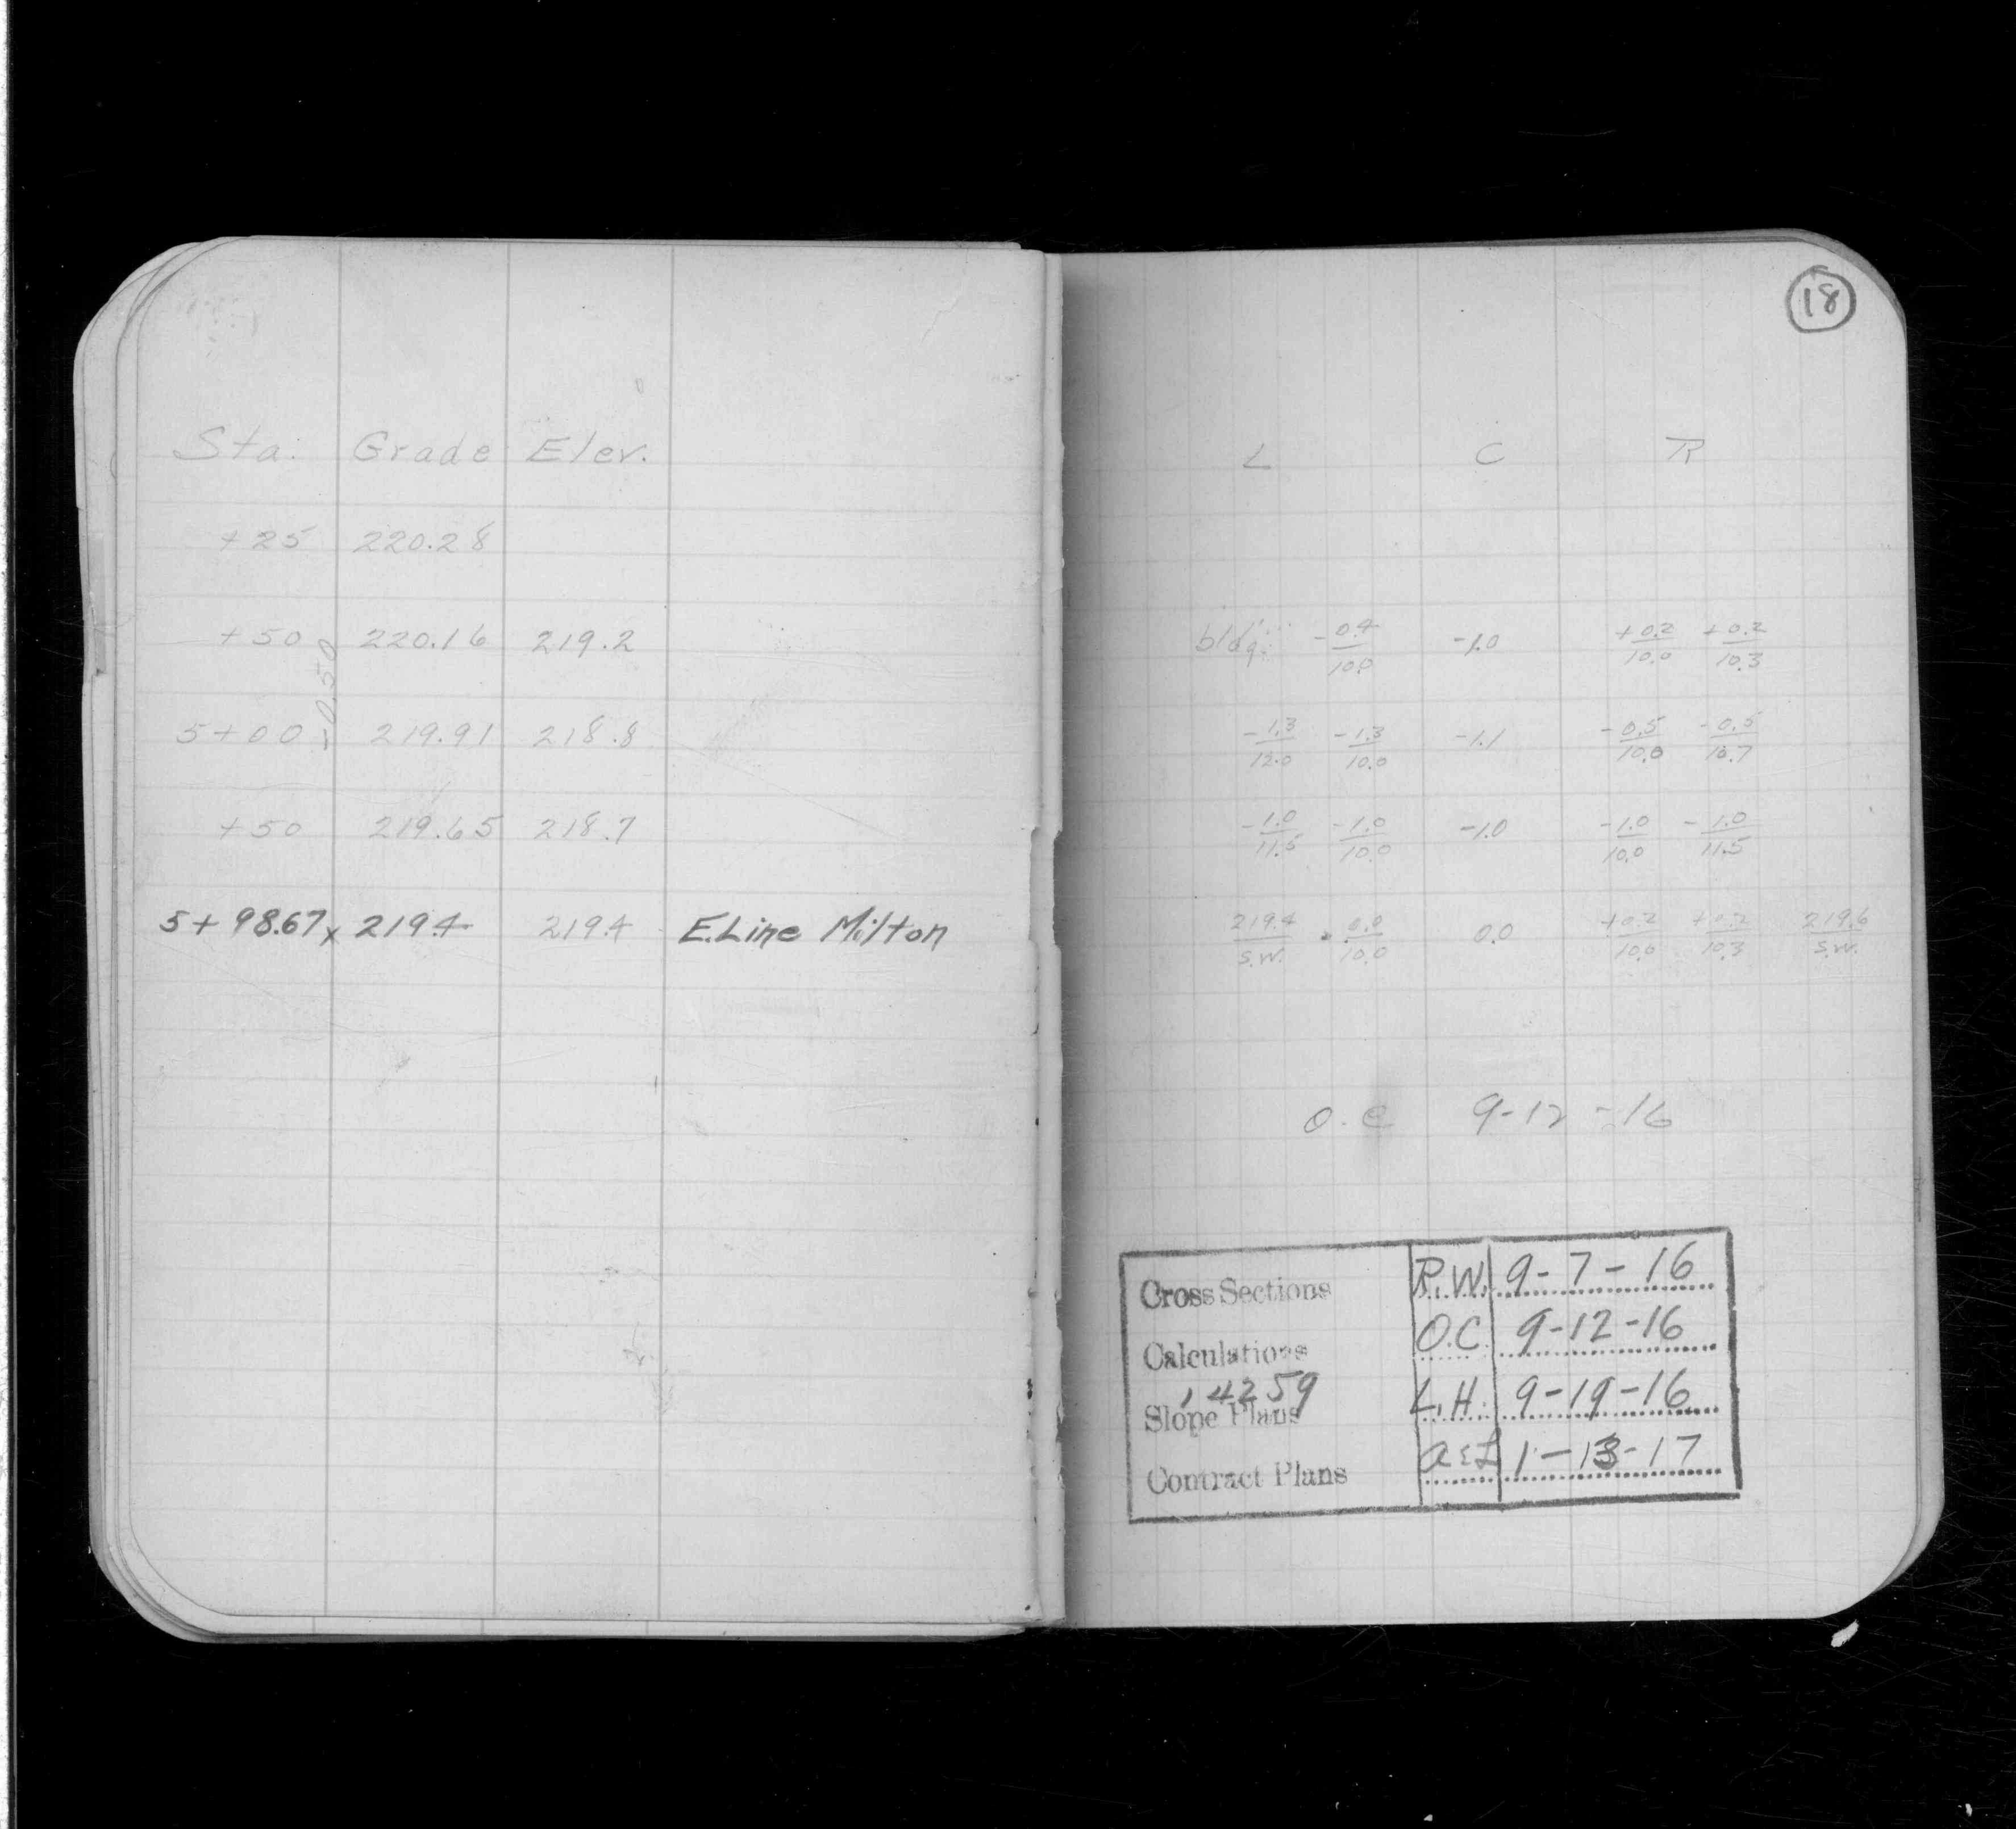 18
Sta. Grade Elev. L C R
+25 220.28
+50 220.16 219.2 bldg. -0.4/10.0 -1.0 +0.2/10.0 +0.2/10.3
-0.50
5+00 219.91 218.8 -1.3/12.0 -1.3/10.0 -1.1 -0.5/10.0 -0.5/10.7
+50 219.65 218.7 -1.0/11.5 -1.0/10.0 -1.0 -1.0/10.0 -1.0/11.5
5+98.67x 219.4 219.4 E.Line Milton 219.4/S.W. 0.0/10.0 0.0 +0.2/10.0 +0.2/10.3 219.6/S.W.
O.C 9-12-16
Cross Sections R.W. 9-7-16
Calculations O.C. 9-12-16
14259
Slope Plans L.H. 9-19-16
Contract Plans 1-13-17